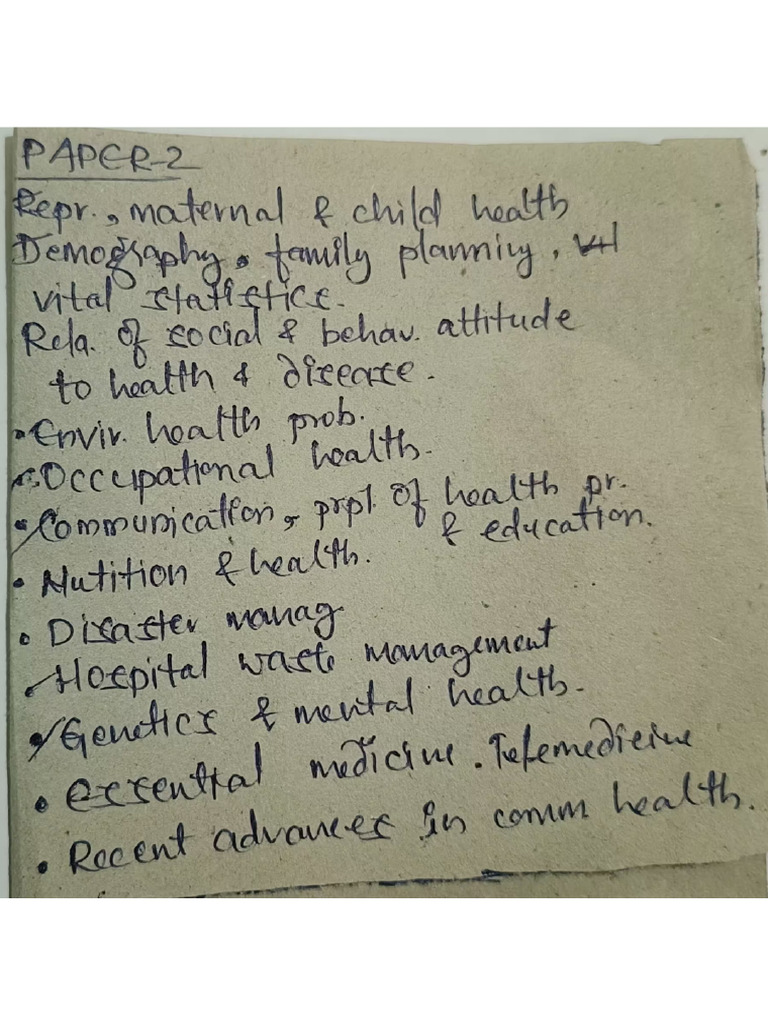 PAPER-2
Repr., maternal & child health
Demography, family planning,
vital statistics.
Rela. of social & behav. attitude
to health & disease.
• Envir. health prob.
• Occupational health.
• Communication, prpl. of health pr.
& education.
• Nutition & health.
• Disaster manag
Hospital waste management
• Genetics & mental health.
• essential medicine. Telemedicine
• Recent advances in comm health.